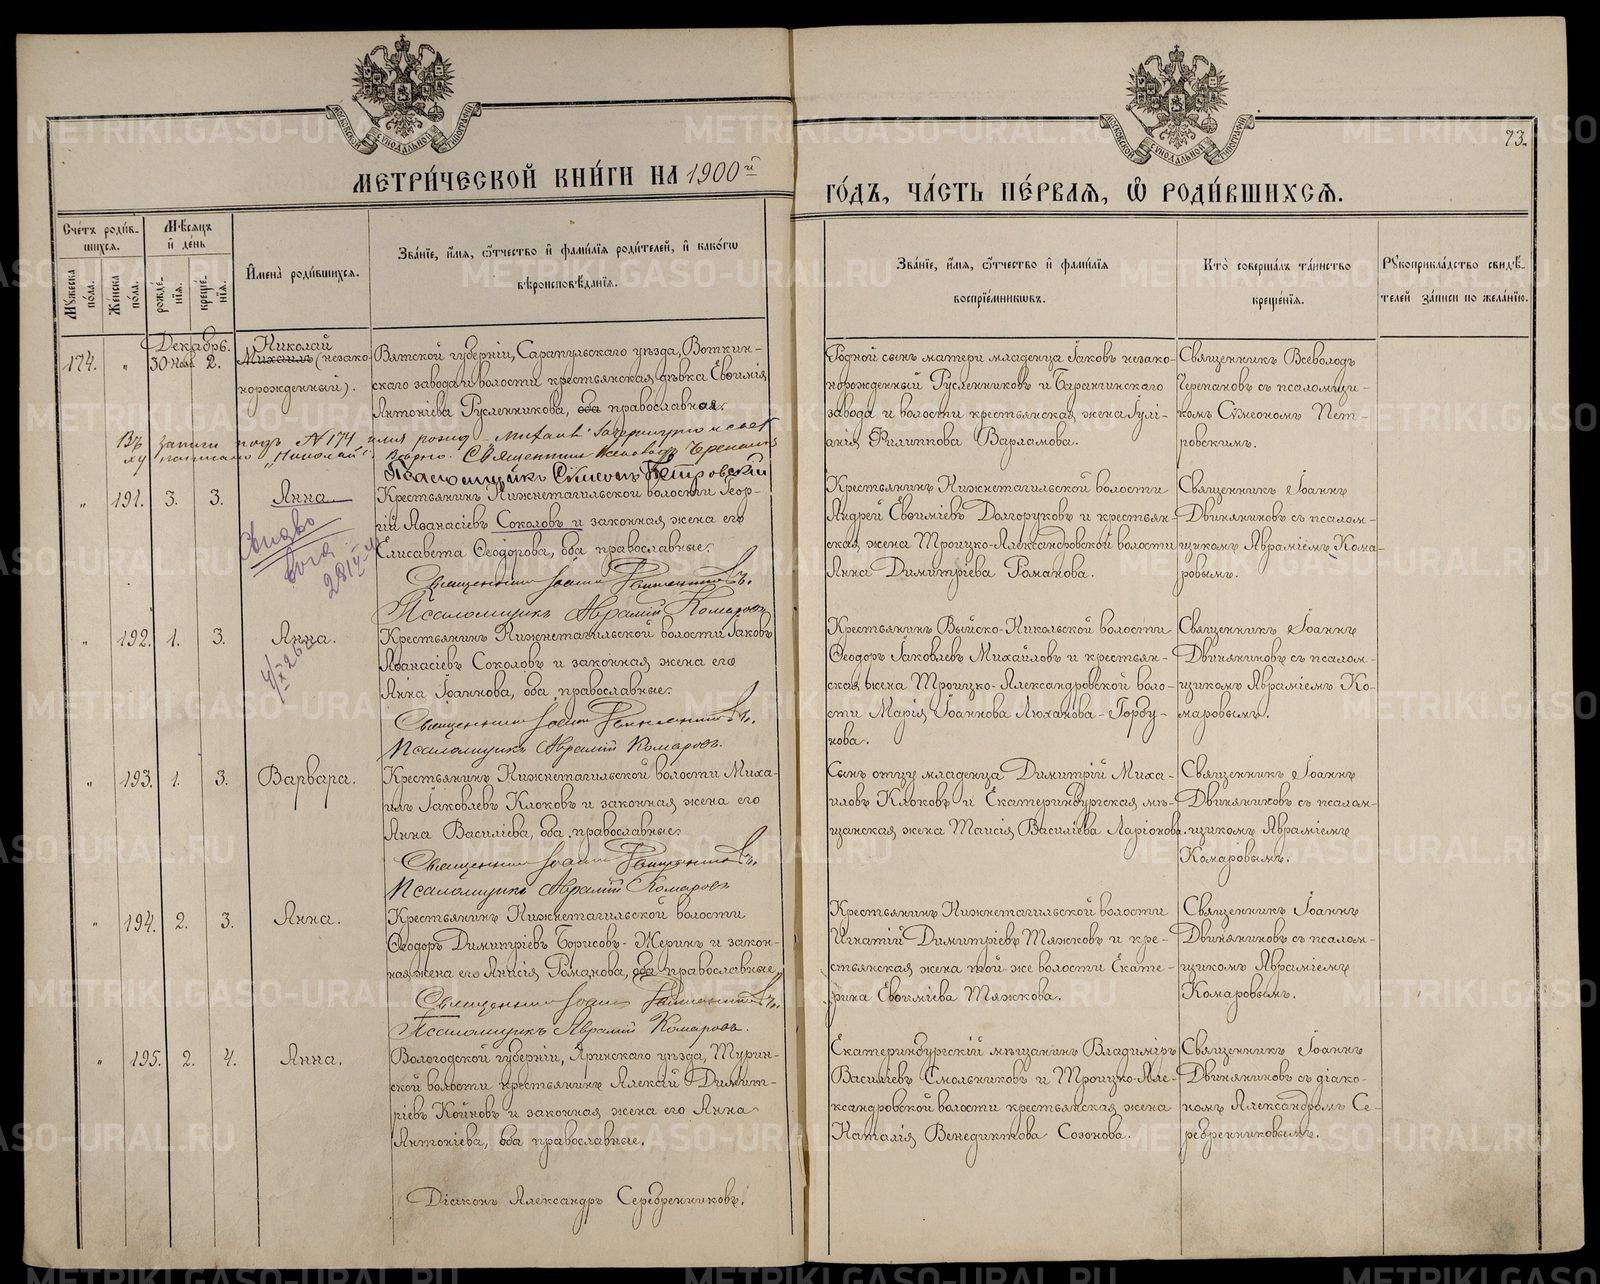 МЕТРИ́ЧЕСКОЙ КНИ́ГИ НА 1900й
ГО́ДЪ, ЧА́СТЬ ПЕ́РВАѦ, Ѽ РОДИ́ВШИХСѦ.
73.
Сче́тъ роди́в-
шихся.
Мѣ́сяцъ
и҆ де́нь
Му́жеска по́ла.
Же́нска по́ла.
рожде́-
нїѧ.
креще́-
нїѧ.
И҆мена̀ роди́вшихся.
Зва́нїе, и҆́мѧ, ѿтчество и҆ фами́лїѧ роди́телей, и҆ како́гѡ
вѣроисповѣ́данїѧ.
Зва́нїе, и҆́мѧ, ѿтчество и҆ фами́лїѧ
воспрїе́мниковъ.
Кто̀ соверша́лъ та́инство
креще́нїѧ.
Рꙋкоприкла́дство свидѣ́-
телей за́писи по жела́нїю.
Декабрь.
174. " 30 Нояб. 2.
Николай
Михаилъ (незако-
норожденный).
Вятской губерніи, Сарапульскаго уѣзда, Воткин-
скаго завода и волости крестьянская дѣвка Евѳимія
Антоніева Русленникова, оба православная.
Родной сынъ матери младенца Іаковъ незако-
норожденный Русленниковъ и Баранчинскаго
завода и волости крестьянская жена Іулі-
анія Филиппова Варламова.
Священникъ Всеволодъ
Черепановъ съ псаломщи-
комъ Сѵмеономъ Пет-
ровскимъ.
Въ записи подъ №174 имя рожд. "Михаилъ" зачеркнуто и свер-
ху написано "Николай". Вѣрно. Священникъ Всеволодъ Черепановъ
Псаломщикъ Сѵмеонъ Петровскій
" 191. 3. 3. Анна.
Крестьянинъ Нижнетагильской волости Геор-
гій Аѳанасіевъ Соколовъ и законная жена его
Елисавета Ѳеодорова, оба православные.
Священникъ Іоаннъ Двиняниновъ.
Псаломщикъ Аврамій Комаровъ
Крестьянинъ Нижнетагильской волости
Андрей Евѳиміевъ Долгоруковъ и крестьян-
ская жена Троицко-Александровской волости
Анна Димитріева Романова.
Священникъ Іоаннъ
Двиняниновъ съ псалом-
щикомъ Авраміемъ Кома-
ровымъ.
" 192. 1. 3. Анна.
Крестьянинъ Нижнетагильской волости Іаковъ
Аѳанасіевъ Соколовъ и законная жена его
Анна Іоаннова, оба православные.
Священникъ Іоаннъ Двиняниновъ.
Псаломщикъ Аврамій Комаровъ.
Крестьянинъ Выйско-Никольской волости
Ѳеодоръ Іаковлевъ Михайловъ и крестьян-
ская жена Троицко-Александровской воло-
сти Марія Іоаннова Люханова-Горбу-
нова.
Священникъ Іоаннъ
Двиняниновъ съ псалом-
щикомъ Авраміемъ Ко-
маровымъ.
" 193. 1. 3. Варвара.
Крестьянинъ Нижнетагильской волости Миха-
илъ Іаковлевъ Клоковъ и законная жена его
Анна Василіева, оба православные.
Священникъ Іоаннъ Двиняниновъ.
Псаломщикъ Аврамій Комаровъ
Сынъ отцу младенца Димитрій Миха-
иловъ Клоковъ и Екатеринбургская мѣ-
щанская жена Таисія Василіева Ларіонова.
Священникъ Іоаннъ
Двиняниновъ съ псалом-
щикомъ Авраміемъ
Комаровымъ.
" 194. 2. 3. Анна.
Крестьянинъ Нижнетагильской волости
Ѳеодоръ Димитріевъ Борисовъ-Жеринъ и закон-
ная жена его Анисія Романова, оба православные.
Священникъ Іоаннъ Двиняниновъ.
Псаломщикъ Аврамій Комаровъ.
Крестьянинъ Нижнетагильской волости
Игнатій Димитріевъ Тяжковъ и кре-
стьянская жена той-же волости Екате-
рина Евѳиміева Тяжкова.
Священникъ Іоаннъ
Двиняниновъ съ псалом-
щикомъ Авраміемъ
Комаровымъ.
" 195. 2. 4. Анна.
Вологодской губерніи, Яринскаго уѣзда, Турин-
ской волости крестьянинъ Алексій Димит-
ріевъ Койновъ и законная жена его Анна
Антоніева, оба православные.
Діаконъ Александръ Серебренниковъ.
Екатеринбургскій мѣщанинъ Владиміръ
Василіевъ Смольниковъ и Троицко-Але-
ксандровской волости крестьянская жена
Наталія Венедиктова Созонова.
Священникъ Іоаннъ
Двиняниновъ съ діако-
номъ Александромъ Се-
ребренниковымъ.
METRIKI.GASO-URAL.RU